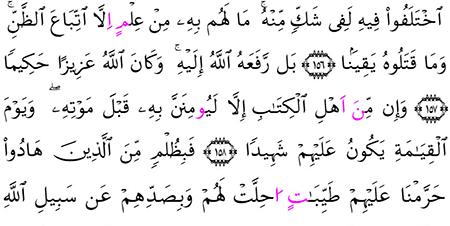 ٱخْتَلَفُوا۟ فِيهِ لَفِى شَكٍّ مِّنْهُ ۚ مَا لَهُم بِهِۦ مِنْ عِلْمٍ إِلَّا ٱتِّبَاعَ ٱلظَّنِّ ۚ
وَمَا قَتَلُوهُ يَقِينًۢا ﴿١٥٦﴾ بَل رَّفَعَهُ ٱللَّهُ إِلَيْهِ ۚ وَكَانَ ٱللَّهُ عَزِيزًا حَكِيمًا
﴿١٥٧﴾ وَإِن مِّنَ اَهْلِ ٱلْكِتَٰبِ إِلَّا لَيُومِنَنَّ بِهِۦ قَبْلَ مَوْتِهِۦ ۖ وَيَوْمَ
ٱلْقِيَٰمَةِ يَكُونُ عَلَيْهِمْ شَهِيدًا ﴿١٥٨﴾ فَبِظُلْمٍ مِّنَ ٱلَّذِينَ هَادُوا۟
حَرَّمْنَا عَلَيْهِمْ طَيِّبَٰتٍ ا۟حِلَّتْ لَهُمْ وَبِصَدِّهِمْ عَن سَبِيلِ ٱللَّهِ